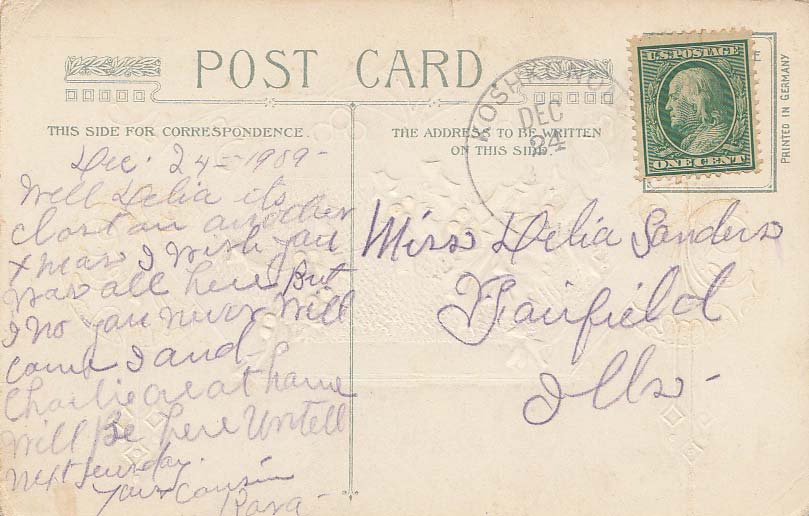 POST CARD
THIS SIDE FOR CORRESPONDENCE.
THE ADDRESS TO BE WRITTEN
ON THIS SIDE
PRINTED IN GERMANY
U.S. POSTAGE
ONE CENT
DEC
24
Dec. 24 - 1909 -
Well Delia its
clost on another
Xmas I wish you
was all here But
I no you never will
come I and
Charlie are at home
will Be here Untell
next sunday.
Your Cousin
Miss Delia Sanders
Fairfield
Ills -